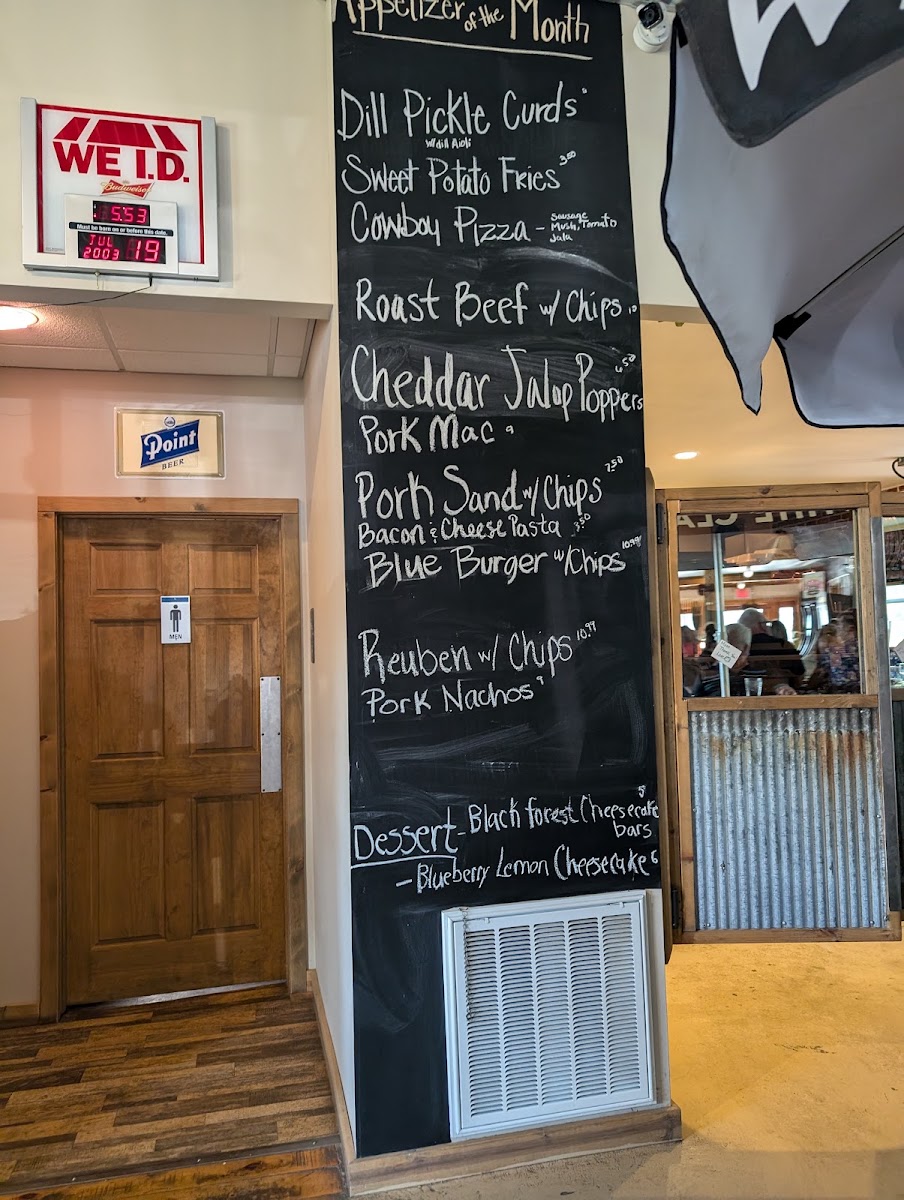 Appetizer of the Month
Dill Pickle Curds
w/ dill Aioli
Sweet Potato Fries 3.50
Cowboy Pizza - Sausage
Mush, Tomato
Roast Beef w/ Chips 10
Cheddar Jalap Poppers 6.50
Pork Mac 9
Pork Sand w/ Chips 7.50
Bacon & Cheese Pasta 3.50
Blue Burger w/ Chips 10.99
Reuben w/ Chips 10.99
Pork Nachos 9
Dessert - Black forest Cheesecake
bars 5
- Blueberry Lemon Cheesecake 6
WE I.D.
Budweiser
5:53
Must be born on or before this date.
JUL 19
2003
Point
BEER
MEN